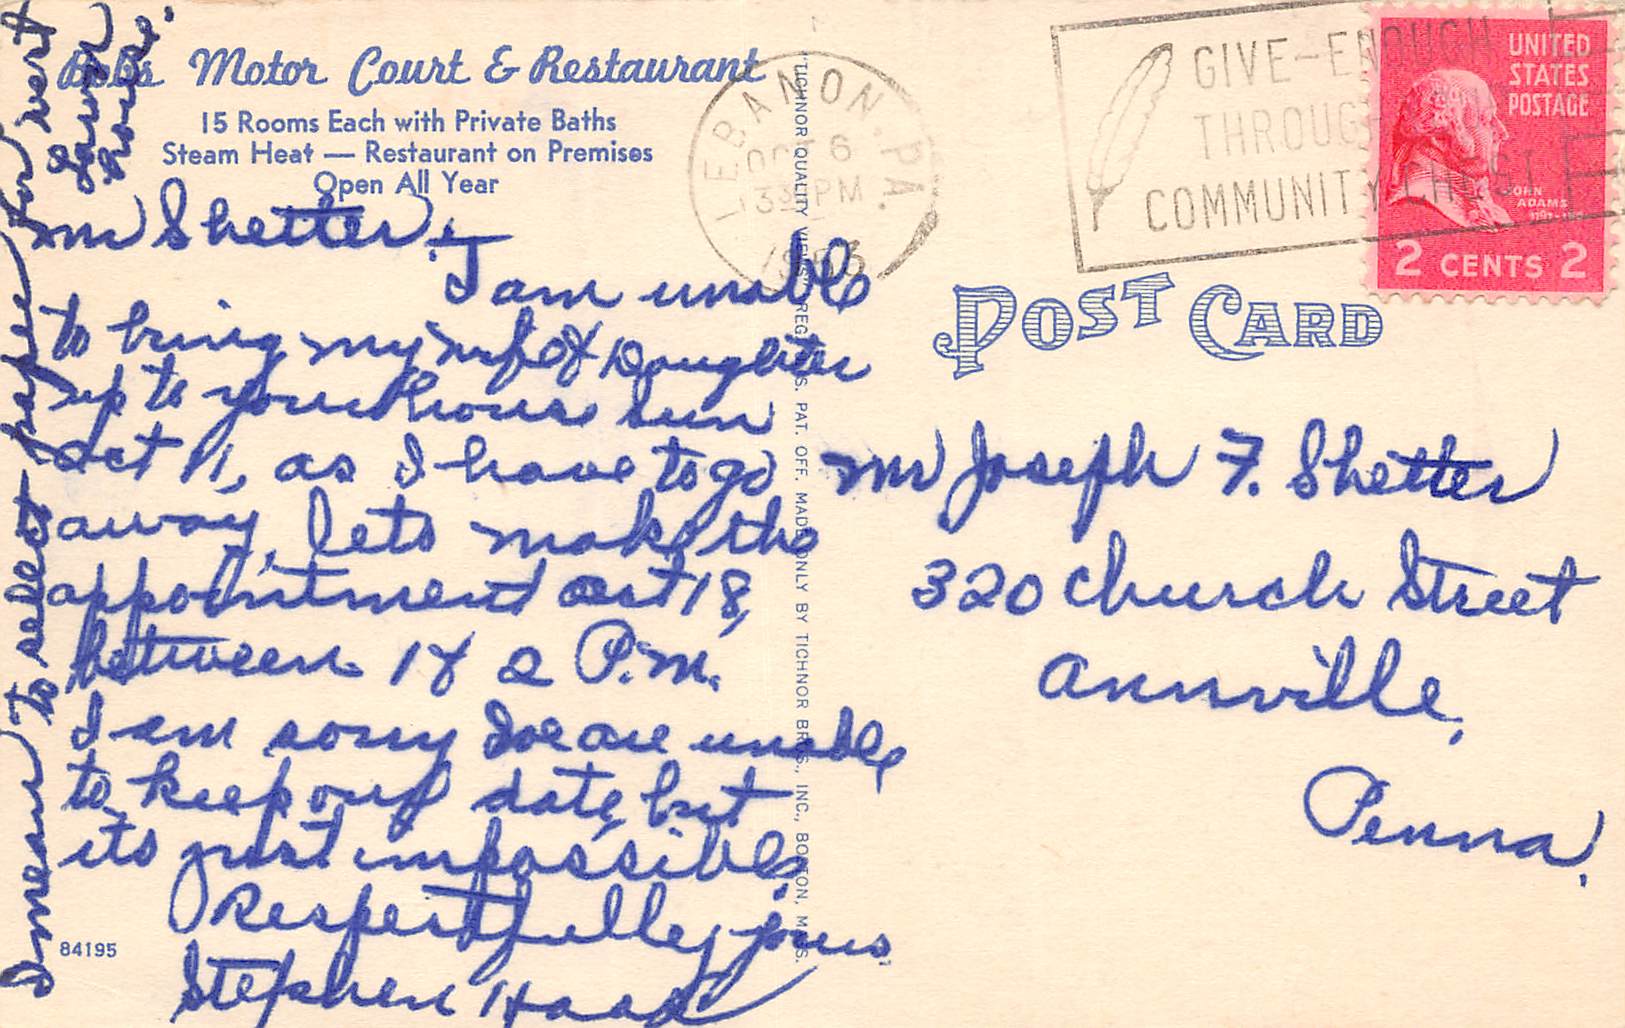 Bob's Motor Court & Restaurant
15 Rooms Each with Private Baths
Steam Heat — Restaurant on Premises
Open All Year
Mr Shetter.
I am unable
to bring my wife & Daughter
up to your house Sun
Oct 11, as I have to go
away, lets make the
appointment Oct 18,
between 1 & 2 P.M.
I am sorry we are unable
to keep our date, but
its just impossible,
Respectfully yours
Stephen Haak
I mean to select paper for west
room
84195
TICHNOR QUALITY VIEWS, REG. U.S. PAT. OFF. MADE ONLY BY TICHNOR BROS., INC., BOSTON, MASS.
LEBANON, PA.
OCT 6
3 PM
1953
GIVE—ENOUGH
THROUGH
COMMUNITY CHEST
UNITED
STATES
POSTAGE
JOHN
ADAMS
2 CENTS 2
POST CARD
Mr Joseph F. Shetter
320 Church Street
Annville,
Penna.